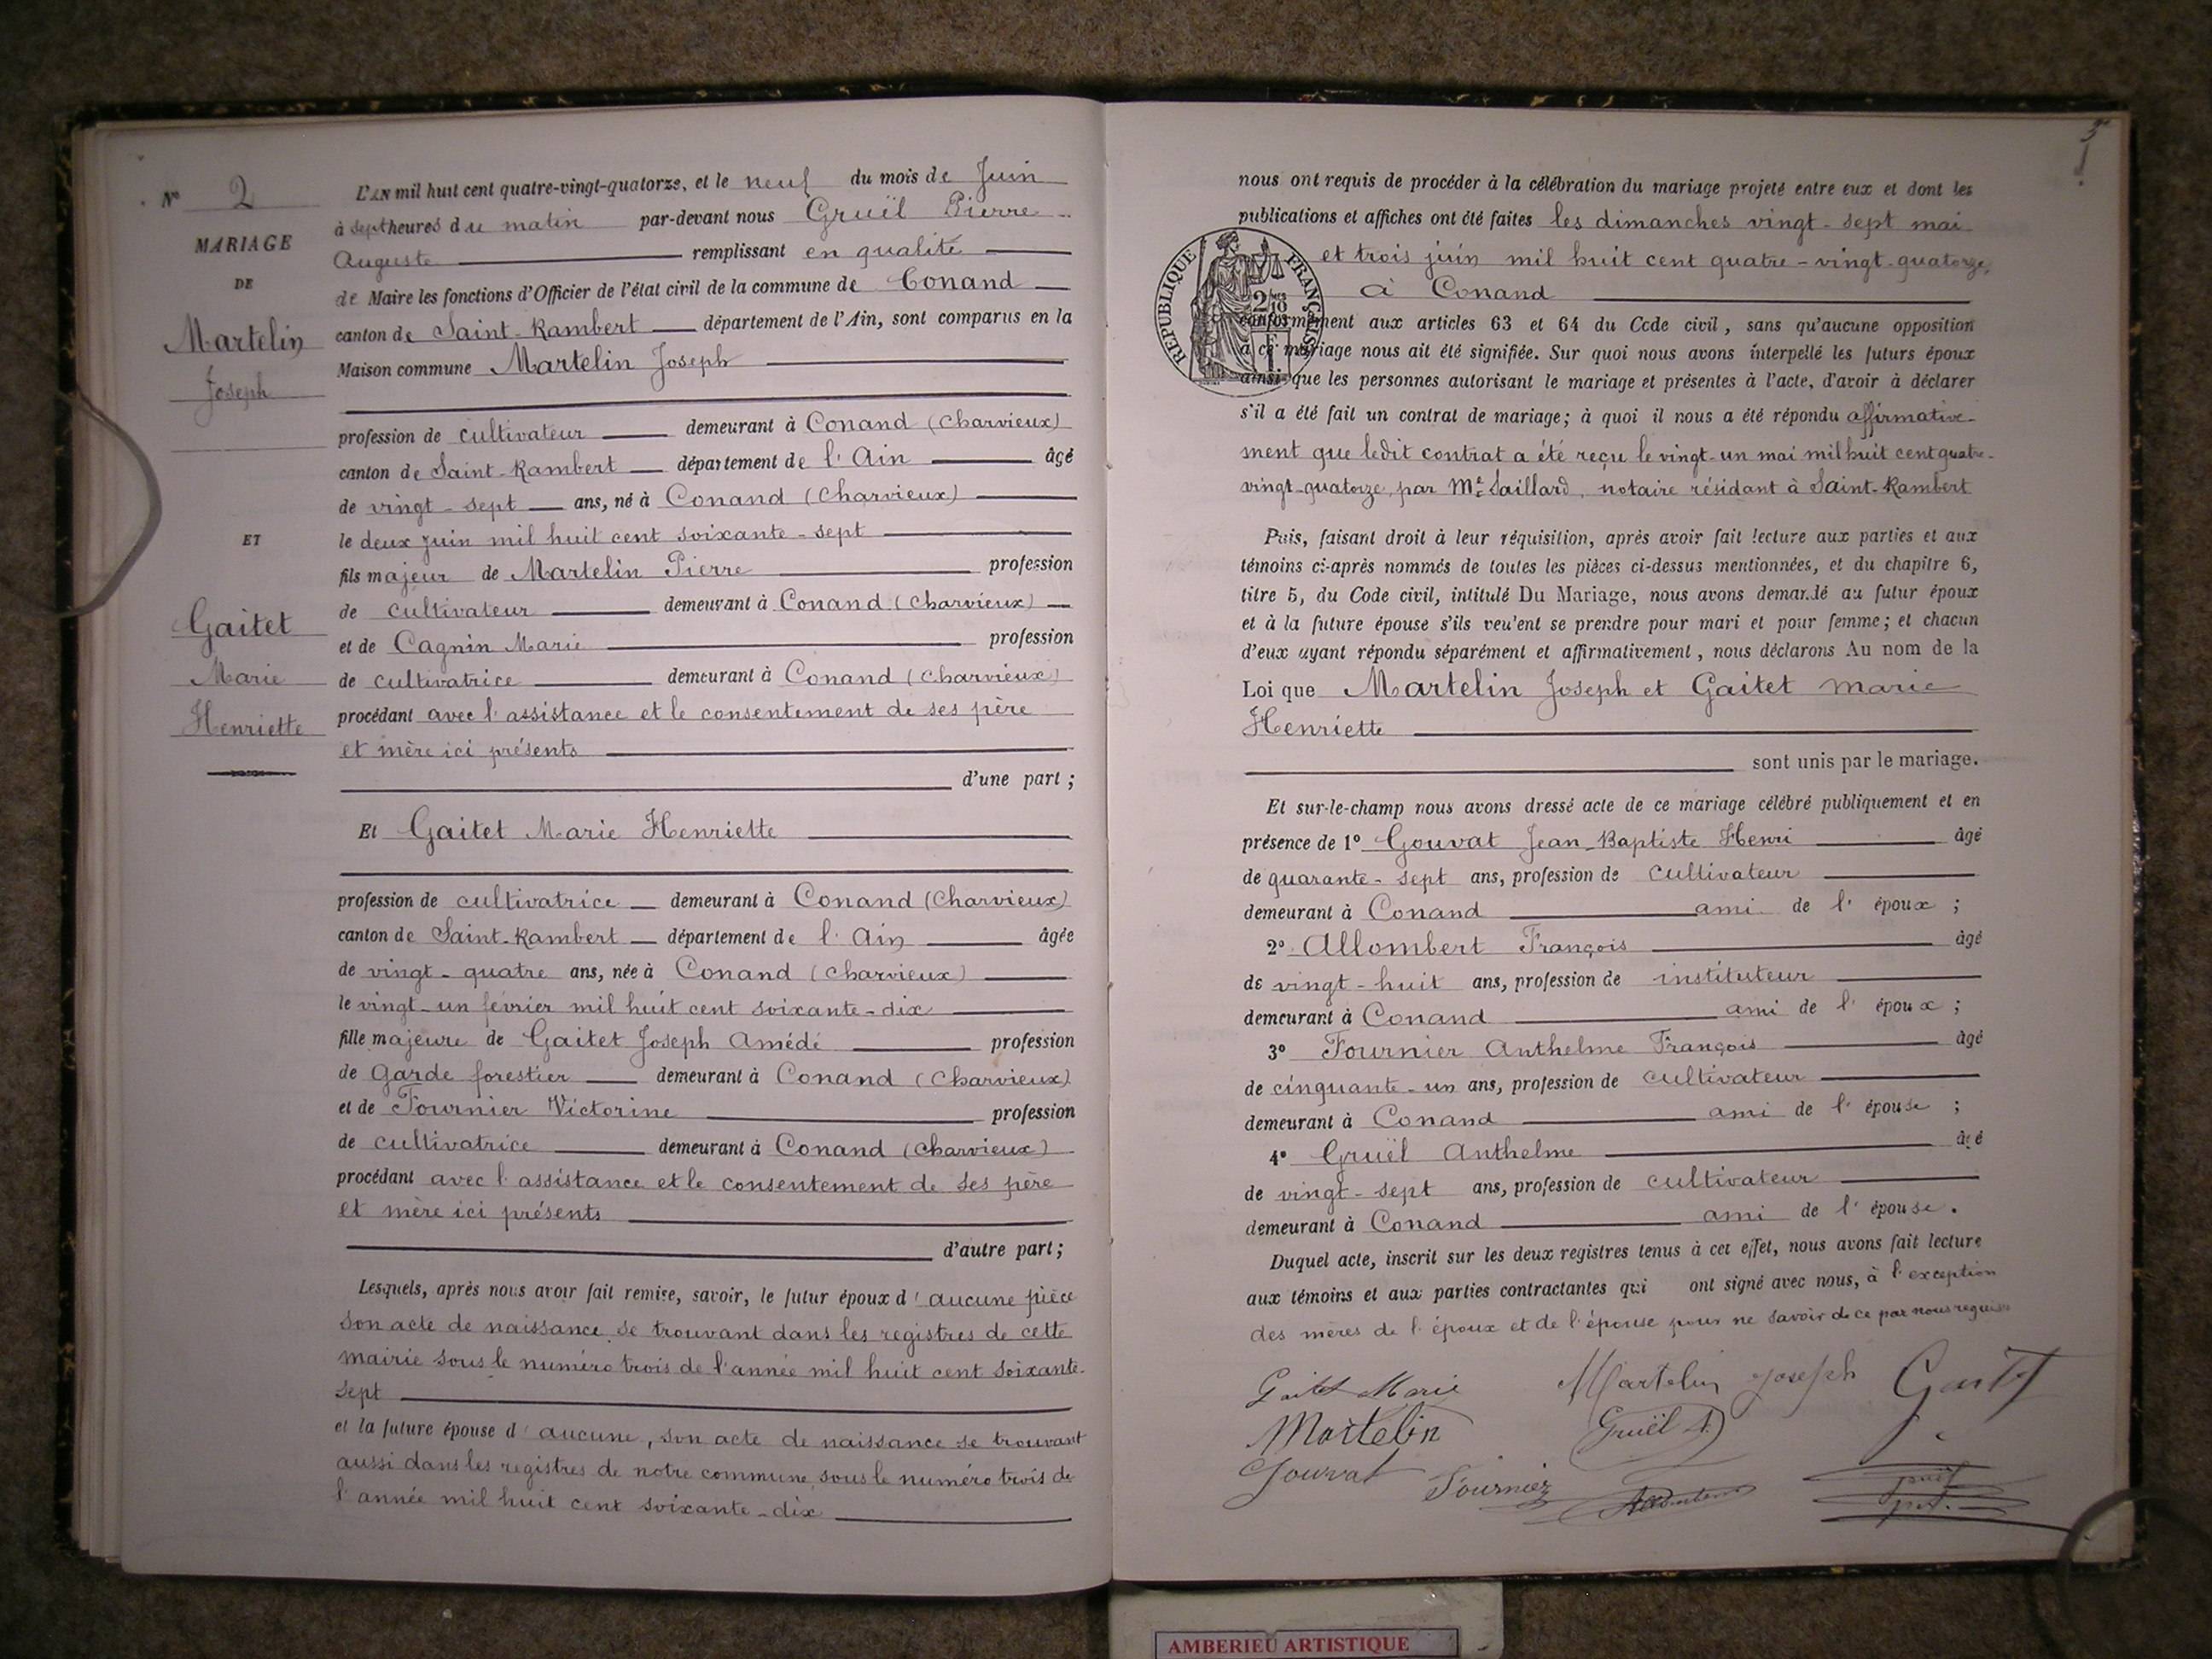 N° 2
MARIAGE
DE
Martelin
Joseph
ET
Gaitet
Marie
Henriette
L'AN mil huit cent quatre-vingt-quatorze, et le neuf du mois de Juin
à sept heures du matin par-devant nous Gruël Pierre
Auguste remplissant en qualité
de Maire les fonctions d'Officier de l'état civil de la commune de Conand
canton de Saint-Rambert département de l'Ain, sont comparus en la
Maison commune Martelin Joseph
profession de cultivateur demeurant à Conand (Charvieux)
canton de Saint-Rambert département de l'Ain âgé
de vingt-sept ans, né à Conand (Charvieux)
le deux juin mil huit cent soixante-sept
fils majeur de Martelin Pierre profession
de cultivateur demeurant à Conand (Charvieux)
et de Cagnin Marie profession
de cultivatrice demeurant à Conand (Charvieux)
procédant avec l'assistance et le consentement de ses père
et mère ici présents
d'une part ;
Et Gaitet Marie Henriette
profession de cultivatrice demeurant à Conand (Charvieux)
canton de Saint-Rambert département de l'Ain âgée
de vingt-quatre ans, née à Conand (Charvieux)
le vingt-un février mil huit cent soixante-dix
fille majeure de Gaitet Joseph Amédé profession
de Garde forestier demeurant à Conand (Charvieux)
et de Fournier Victorine profession
de cultivatrice demeurant à Conand (Charvieux)
procédant avec l'assistance et le consentement de ses père
et mère ici présents
d'autre part ;
Lesquels, après nous avoir fait remise, savoir, le futur époux d'aucune pièce
son acte de naissance se trouvant dans les registres de cette
mairie sous le numéro trois de l'année mil huit cent soixante-
sept
et la future épouse d'aucune, son acte de naissance se trouvant
aussi dans les registres de notre commune sous le numéro trois de
l'année mil huit cent soixante-dix
nous ont requis de procéder à la célébration du mariage projeté entre eux et dont les
publications et affiches ont été faites les dimanches vingt-sept mai
et trois juin mil huit cent quatre-vingt-quatorze,
à Conand
RÉPUBLIQUE FRANÇAISE
conformément aux articles 63 et 64 du Code civil, sans qu'aucune opposition
à ce mariage nous ait été signifiée. Sur quoi nous avons interpellé les futurs époux
ainsi que les personnes autorisant le mariage et présentes à l'acte, d'avoir à déclarer
s'il a été fait un contrat de mariage ; à quoi il nous a été répondu affirmative-
ment que ledit contrat a été reçu le vingt-un mai mil huit cent quatre-
vingt-quatorze, par Me Saillard, notaire résidant à Saint-Rambert
Puis, faisant droit à leur réquisition, après avoir fait lecture aux parties et aux
témoins ci-après nommés de toutes les pièces ci-dessus mentionnées, et du chapitre 6,
titre 5, du Code civil, intitulé Du Mariage, nous avons demandé au futur époux
et à la future épouse s'ils veulent se prendre pour mari et pour femme ; et chacun
d'eux ayant répondu séparément et affirmativement, nous déclarons Au nom de la
Loi que Martelin Joseph et Gaitet Marie
Henriette
sont unis par le mariage.
Et sur-le-champ nous avons dressé acte de ce mariage célébré publiquement et en
présence de 1° Gouvat Jean-Baptiste Henri âgé
de quarante-sept ans, profession de cultivateur
demeurant à Conand ami de l'époux ;
2° Allombert François âgé
de vingt-huit ans, profession de instituteur
demeurant à Conand ami de l'époux ;
3° Fournier Anthelme François âgé
de cinquante-un ans, profession de cultivateur
demeurant à Conand ami de l'épouse ;
4° Gruël Anthelme âgé
de vingt-sept ans, profession de cultivateur
demeurant à Conand ami de l'épouse.
Duquel acte, inscrit sur les deux registres tenus à cet effet, nous avons fait lecture
aux témoins et aux parties contractantes qui ont signé avec nous, à l'exception
des mères de l'époux et de l'épouse pour ne savoir de ce par nous requises
Gaitet Marie Martelin Joseph Gaitet
Martelin Gruël A.
Gouvat Fournier
AMBERIEU ARTISTIQUE